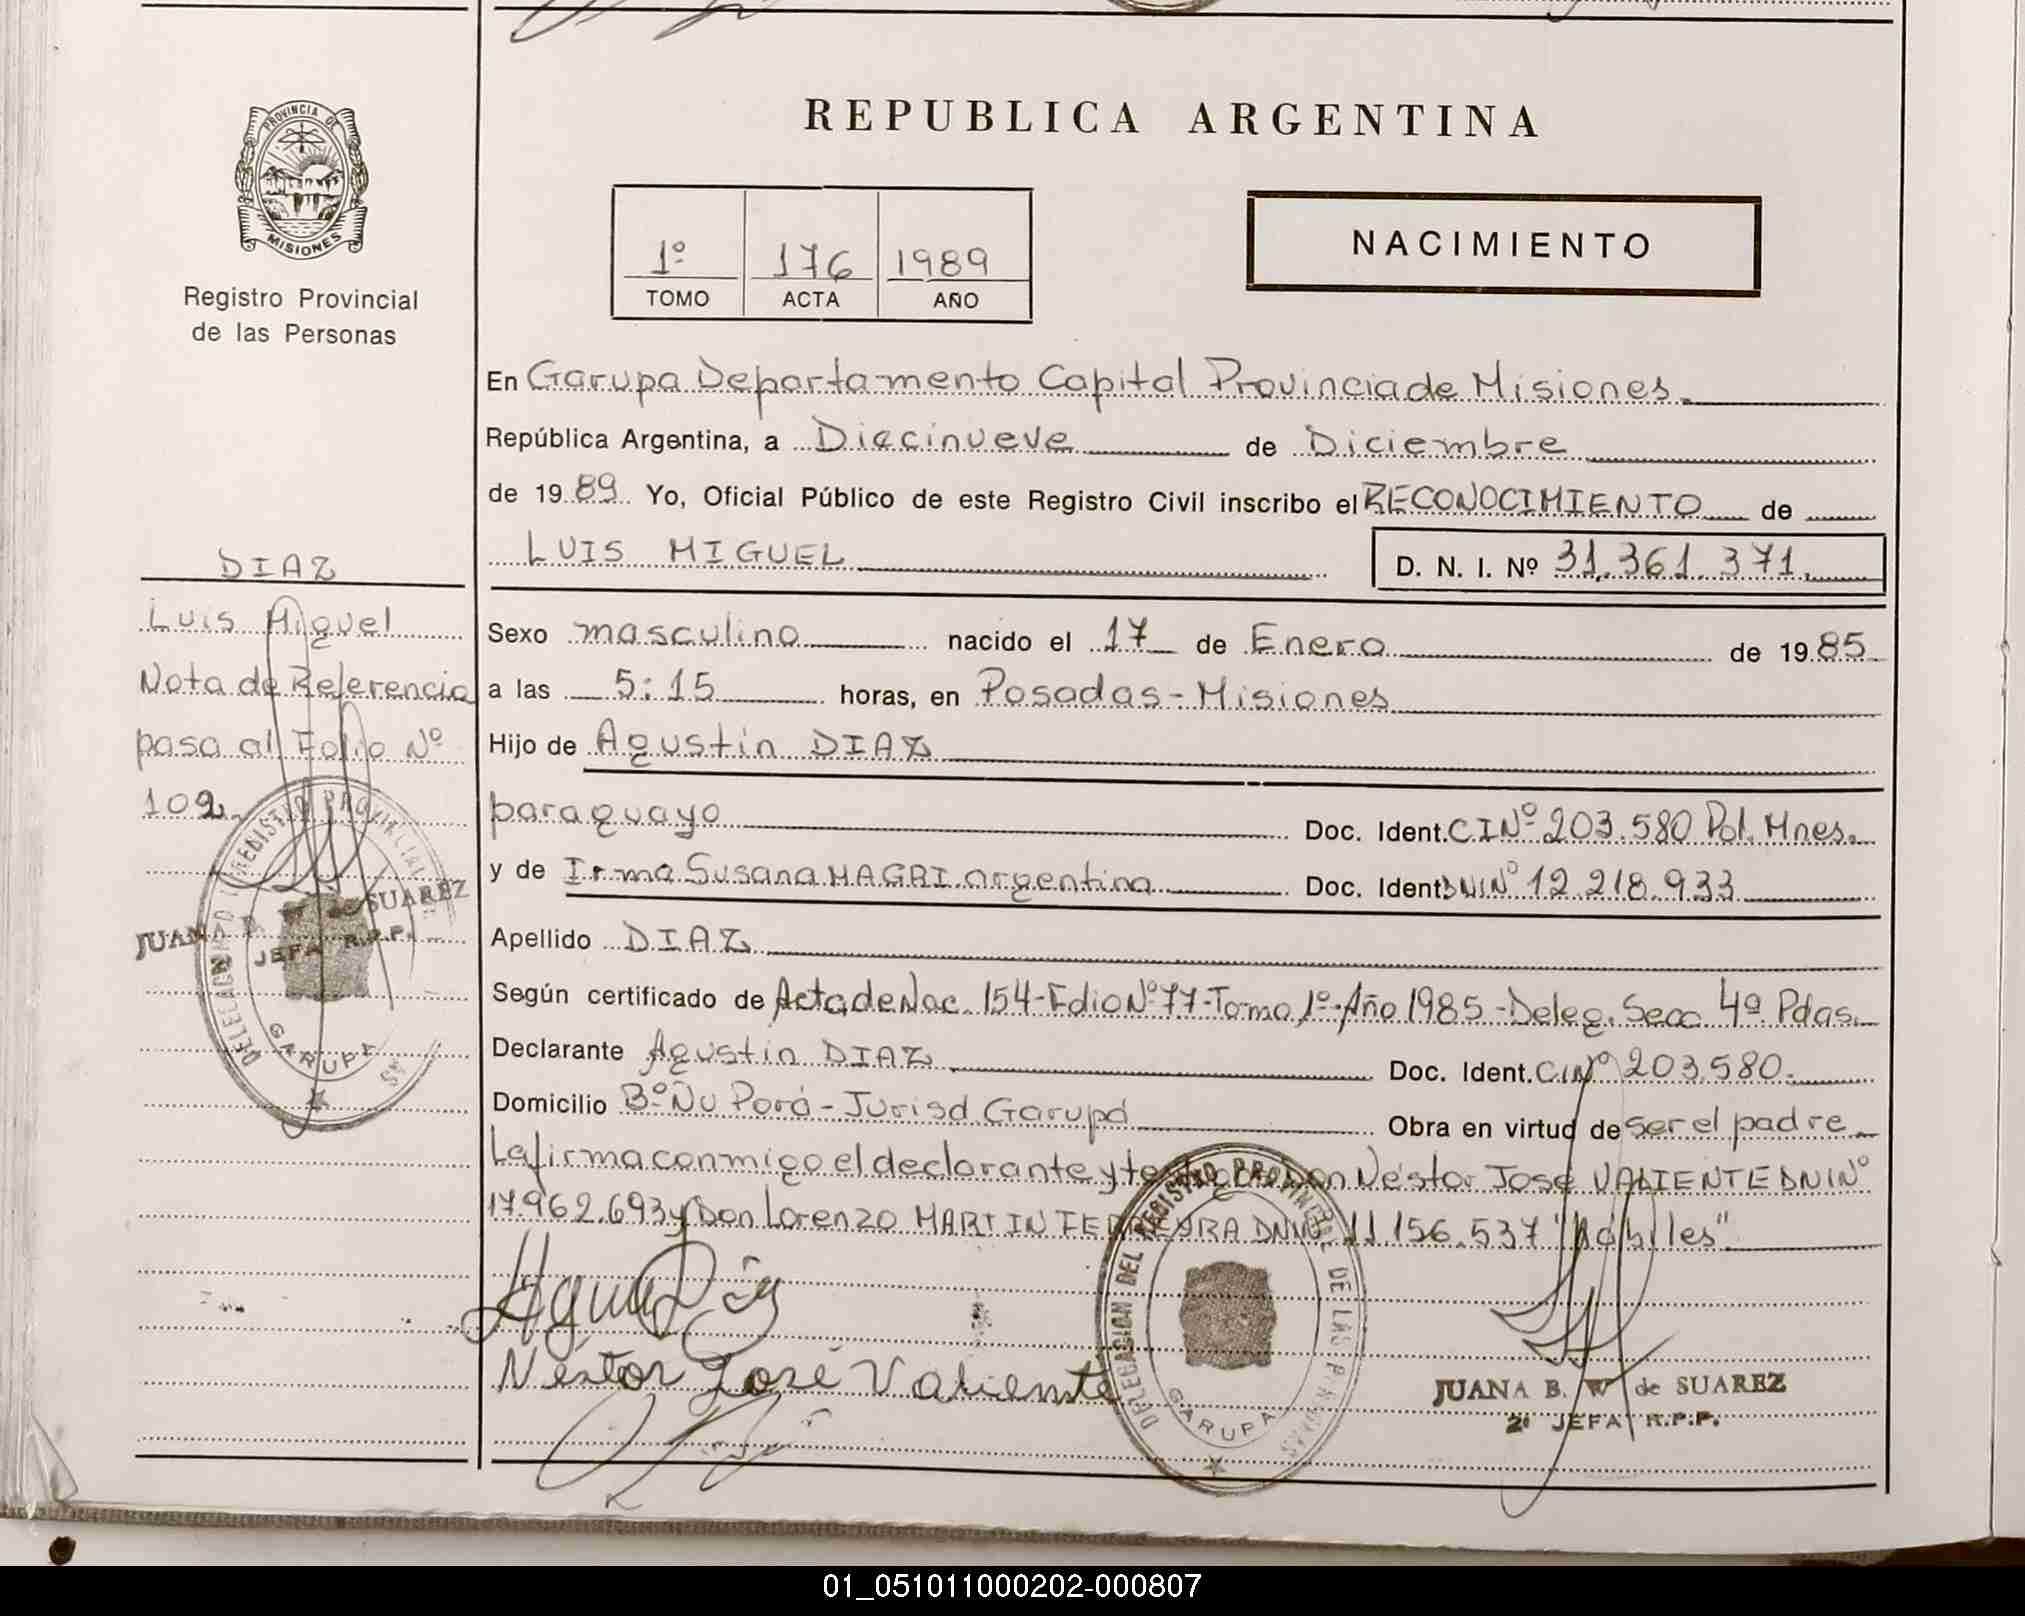 PROVINCIA DE
MISIONES
Registro Provincial
de las Personas
REPUBLICA ARGENTINA
1º 176 1989
TOMO ACTA AÑO
NACIMIENTO
En Garupa Departamento Capital Provincia de Misiones.
República Argentina, a Diecinueve de Diciembre
de 1989 Yo, Oficial Público de este Registro Civil inscribo el RECONOCIMIENTO de
LUIS MIGUEL D. N. I. Nº 31.361.371.
Sexo masculino nacido el 17 de Enero de 1985
a las 5:15 horas, en Posadas-Misiones
Hijo de Agustin DIAZ
paraguayo Doc. Ident. CI Nº 203.580 Pol. Mnes.
y de Irma Susana MAGRI argentina Doc. Ident. DNI Nº 12.218.933
Apellido DIAZ
Según certificado de Acta de Nac. 154-Folio Nº 77-Tomo 1º-Año 1985-Deleg. Secc 4ª Pdas.
Declarante Agustin DIAZ Doc. Ident. CI Nº 203.580.
Domicilio Bº Ñu Porá-Jurisd. Garupá Obra en virtud de ser el padre
Leí firma conmigo el declarante y testigos Don Néstor José VALIENTE DNI Nº
17.962.693 y Don Lorenzo MARTIN FERREYRA DNI Nº 11.156.537 "hábiles"
Néstor José Valiente
DELEGACION DEL REGISTRO PROVINCIAL DE LAS PERSONAS
GARUPA
JUANA B. W de SUAREZ
2ª JEFA R.P.P.
DIAZ
Luis Miguel
Nota de Referencia
pasa al Folio Nº
102.
DELEGACION DEL REGISTRO PROVINCIAL
GARUPA
JUANA B. W de SUAREZ
JEFA R.P.P.
01_051011000202-000807